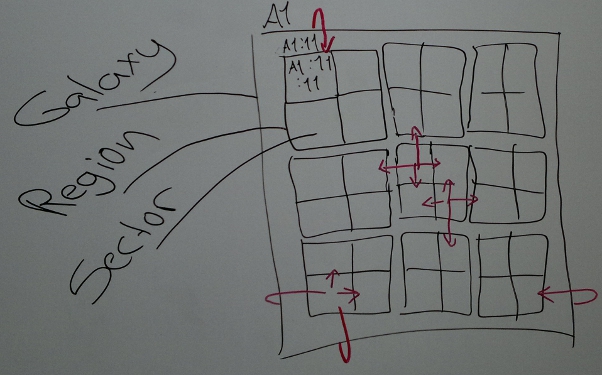 A1
A1:11
A1:11
:11
Galaxy
Region
Sector